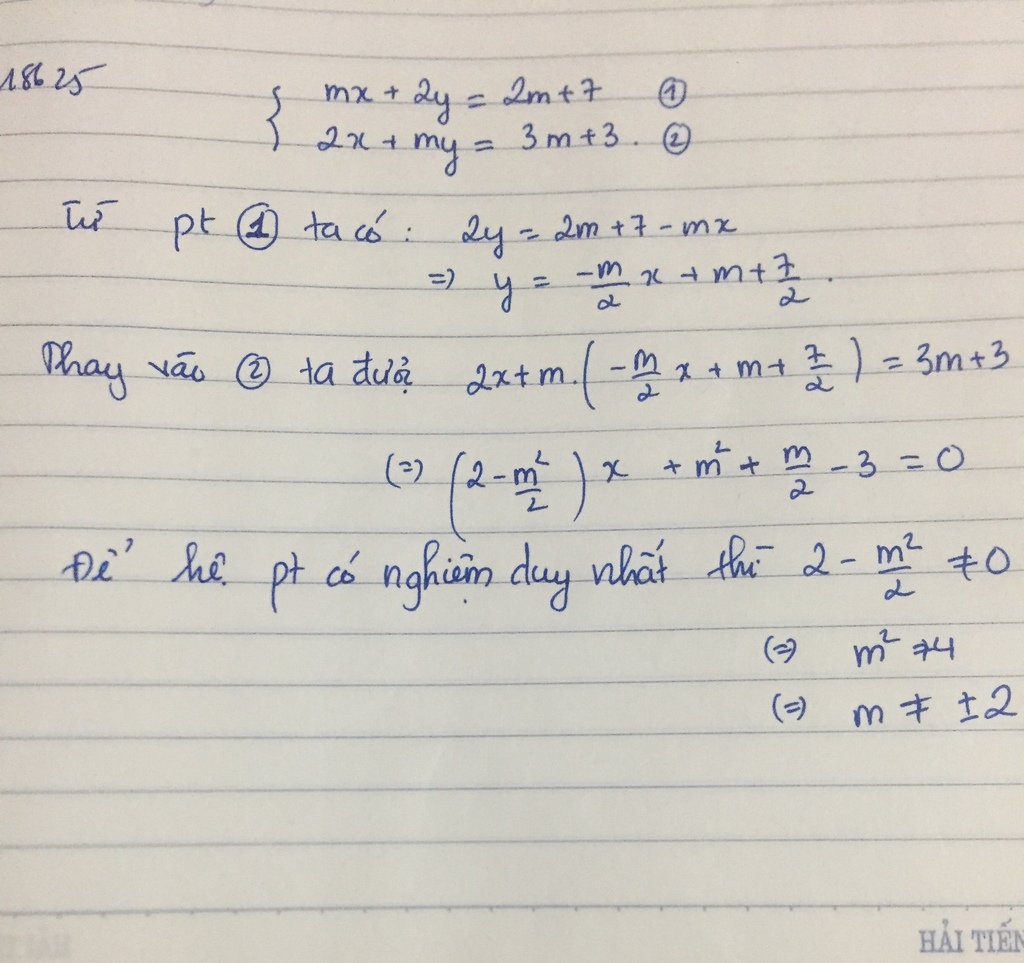 18625
{ mx + 2y = 2m+7 ①
2x + my = 3m+3. ②
Từ pt ① ta có: 2y = 2m+7-mx
=> y = -m/2 x + m + 7/2.
Thay vào ② ta được 2x+m.(-m/2 x + m + 7/2) = 3m+3
(=) (2 - m²/2) x + m² + m/2 - 3 = 0
Để hệ pt có nghiệm duy nhất thì 2 - m²/2 ≠ 0
(=) m² ≠ 4
(=) m ≠ ±2
HẢI TIẾN